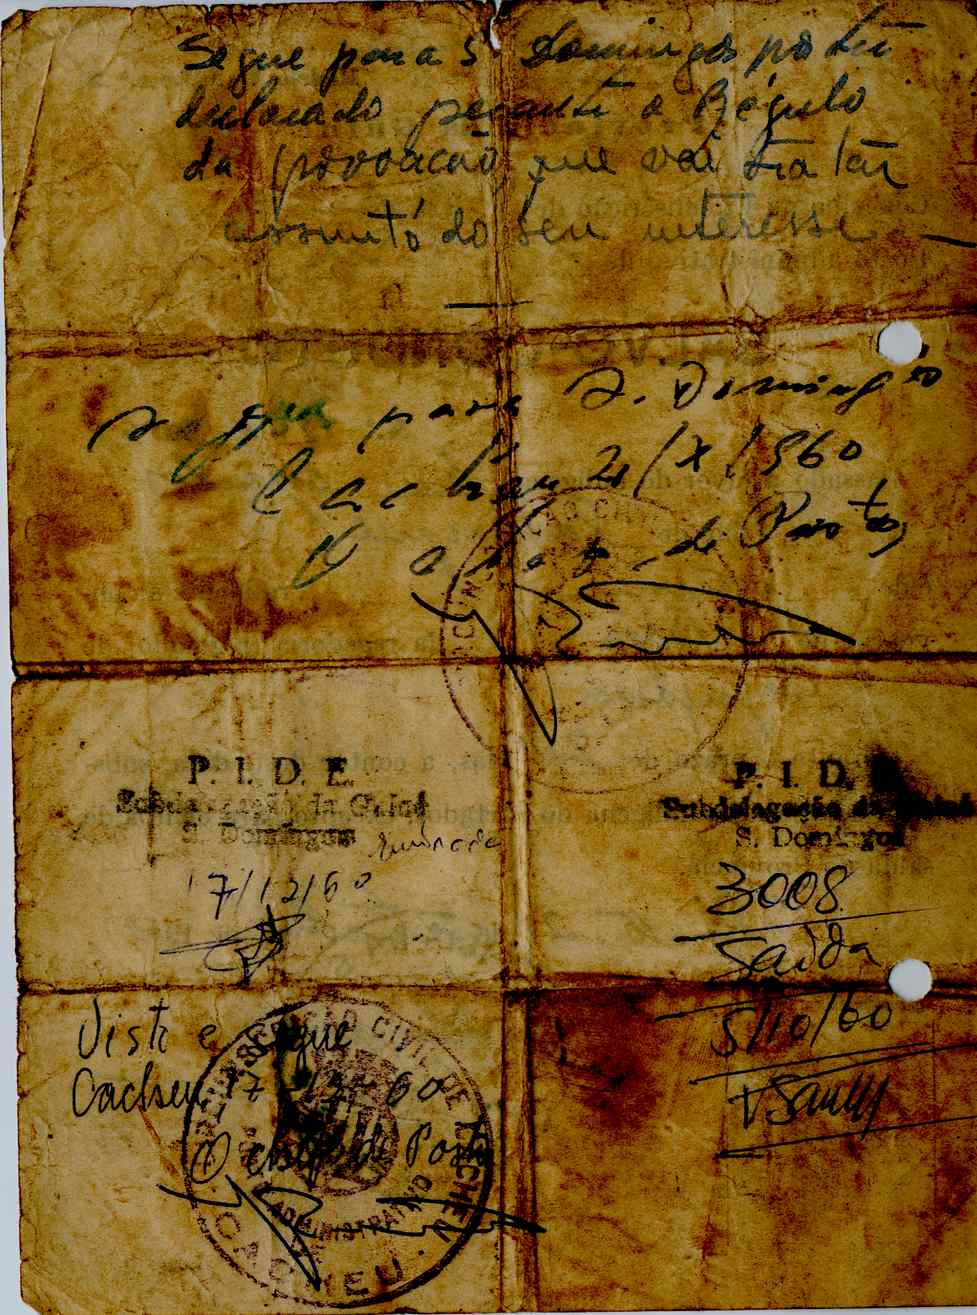 Segue para S. Domingos por ter
declarado perante o Régulo
da povoação, que vai tratar
assunto do seu interesse
Segue para S. Domingos
Cacheu 4/X/960
O Chefe de Posto,
CIRCUNSCRIÇÃO CIVIL
P. I. D. E.
Subdelegação da Guiné
S. Domingos
17/12/60
P. I. D.
Subdelegação da Guiné
S. Domingos
3008
Saída
5/10/60
Visto e segue
Cacheu 17-12-60
O chefe de Posto
CIRCUNSCRIÇÃO CIVIL DE CACHEU
ADMINISTRATIVO
CACHEU